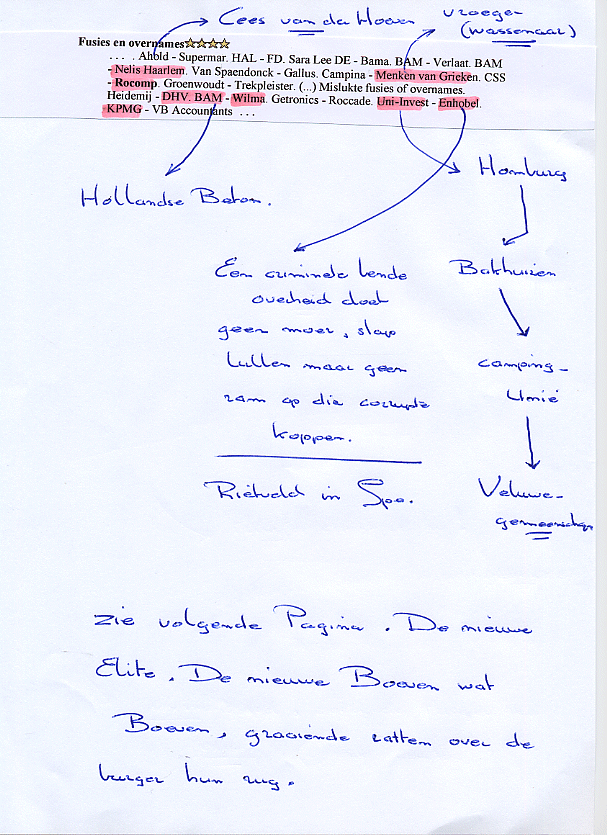 Cees van der Hoeven
vroeger
(wassenaar)
Fusies en overnames☆☆☆☆
. . . . Ahold - Supermar. HAL - FD. Sara Lee DE - Bama. BAM - Verlaat. BAM
- Nelis Haarlem. Van Spaendonck - Gallus. Campina - Menken van Grieken. CSS
- Rocomp. Groenwoudt - Trekpleister. (...) Mislukte fusies of overnames.
Heidemij - DHV. BAM - Wilma. Getronics - Roccade. Uni-Invest - Enhobel.
KPMG - VB Accountants . . .
Hollandse Beton.
Homburg
Bakhuizen
camping-
Unië
Veluwe-
gemeenschap
Een criminele bende
overheid doet
geen moer, slap
lullen maar geen
ram op die corrupte
koppen.
Riëtveld in Spa.
zie volgende Pagina. De nieuwe
Elite. De nieuwe Boeven wat
Boeven, graaiënde ratten over de
burger hun rug.